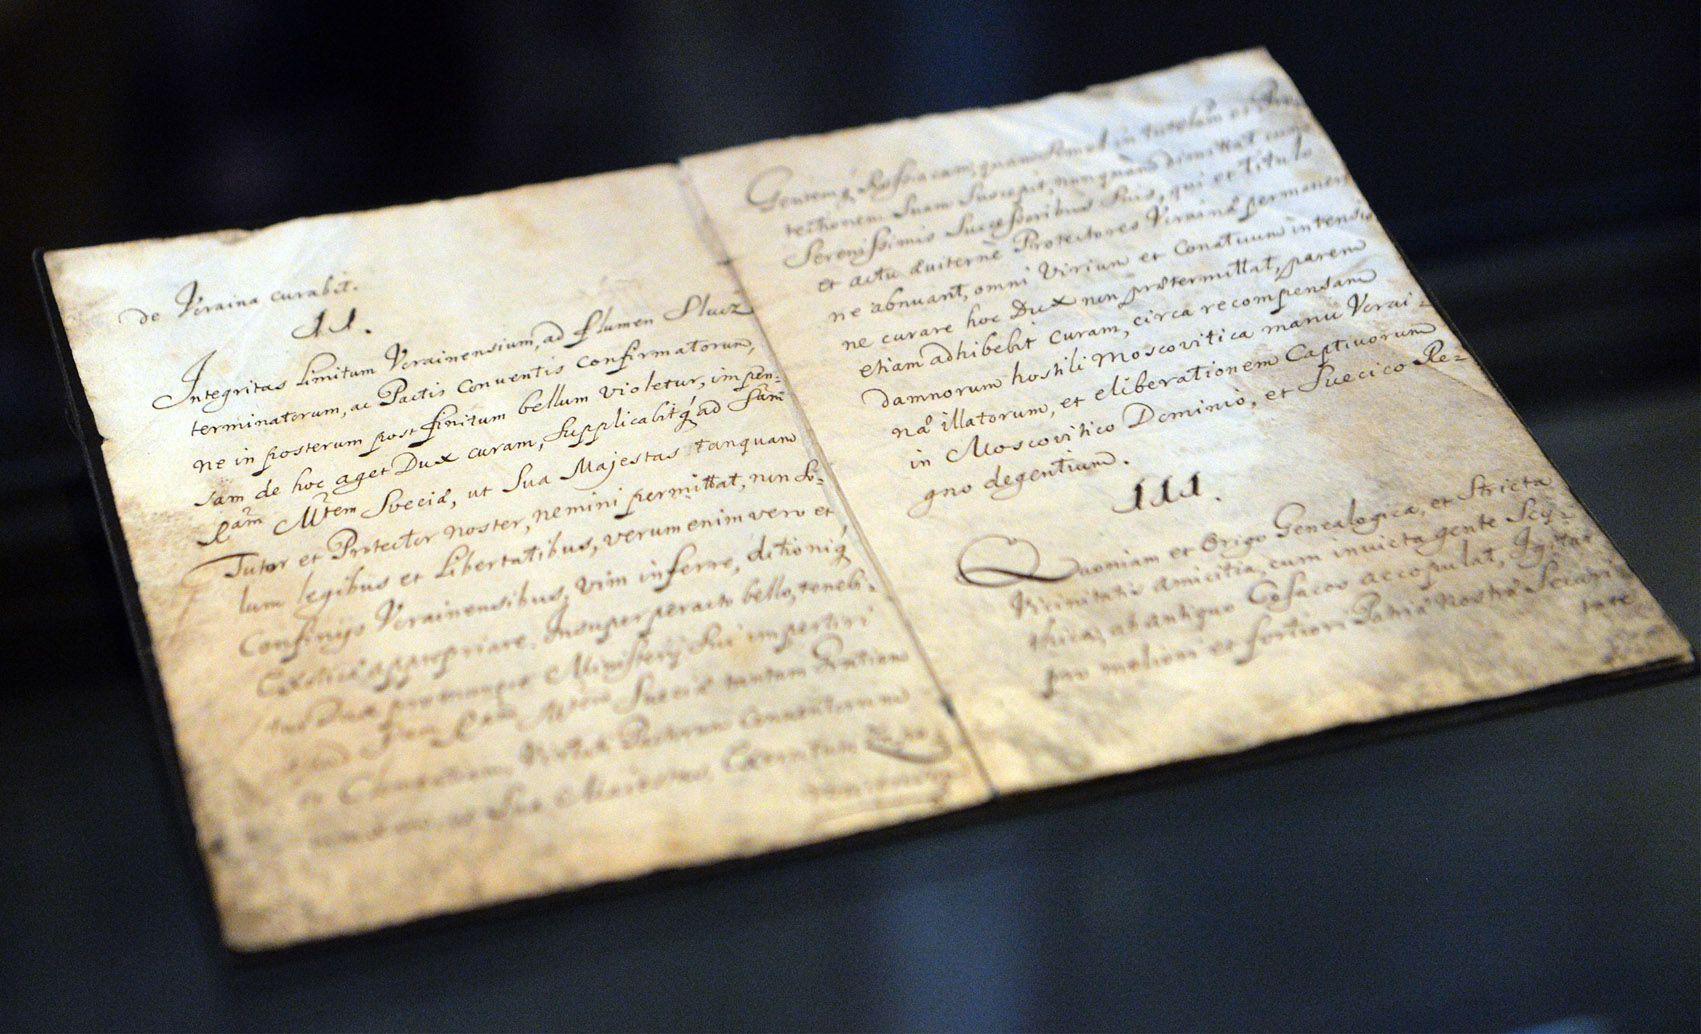 de Vcraina curabit.
II.
Integritas Limitum Vcrainensium, ad flumen Slucz
terminatorum, ac Pactis Conventis confirmatorum,
ne in posterum post finitum bellum violetur, impen-
sam de hoc aget Dux curam, Supplicabitq́ ad Sam̃
Ram̃ Mt̃em Sveciæ, ut Sua Majestas tanquam
Tutor et Protector noster, nemini permittat, non so-
lum legibus et Libertatibus, verum enim vero et
Confinijs Vcrainensibus, vim inferre, ditioniq́
appropriare. Insuper peracto bello, tenebi-
tur Dux Ministerij sui impertiri
Mt̃em Sveciæ tantum
Pactorum Conventionum
Gentemq́ Rossiacam, quam semel in tutelam et Pro-
tectionem suam suscepit, nunquam dimittat cum
Serenissimis Successoribus suis, qui et titulo
et actu æviternè Protectores Vcrainæ permanere
ne abnuant, omni virium et Conatuum intensio
ne curare hoc Dux non prætermittat, parem
etiam adhibebit curam, circa recompensam
damnorum hostili Moscovitica manu Vcrai-
næ illatorum, et eliberationem Captivorum
in Moscovitico Dominio, et Svecico Re-
gno degentium.
III.
Quoniam et Origo Genealogica, et Stricta
Vicinitatis amicitia, cum invicta gente Scy-
thica, ab antiquo Cosacos accopulat, Igitur
pro meliori et fortiori Patriæ Nostræ Securi
tate